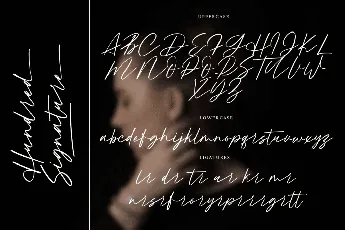 Hundred
Signature
UPPERCASE
ABCDEFGHIJKL
MNOPQRSTUVW
XYZ
LOWERCASE
abcdefghijklmnopqrstuvwxyz
LIGATURES
lr dr tr ar kr mr